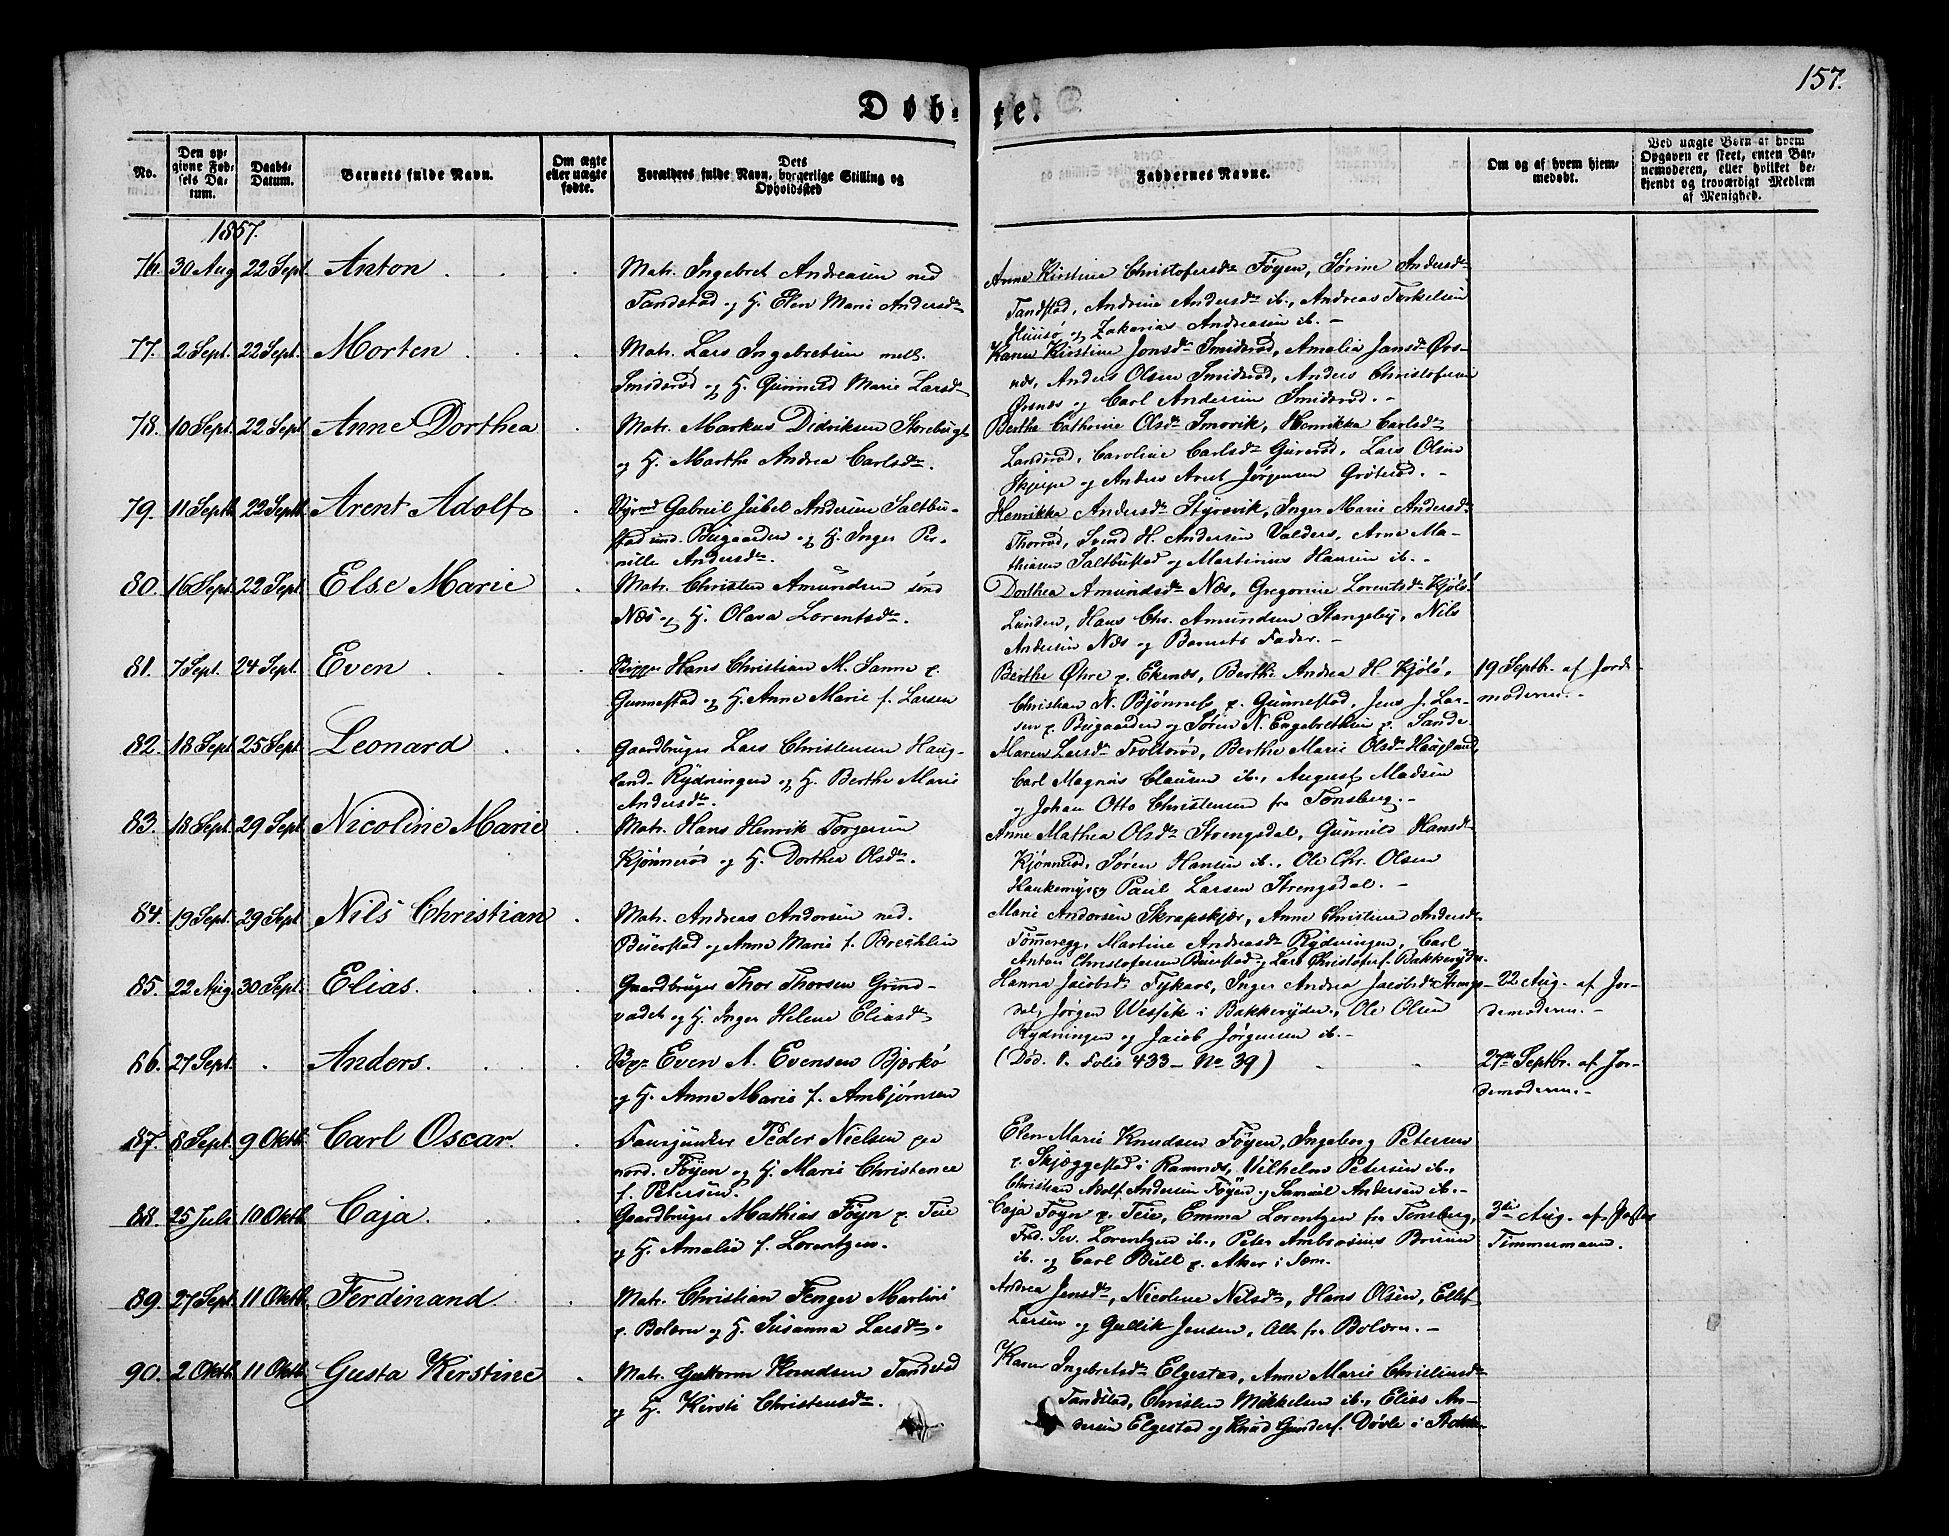 157.
Døb- te.
No.
Den op-
givne Fød-
sels Da-
tum.
Daabs-
Datum.
Barnets fulde Navn.
Om ægte
eller uægte
fødte.
Dets
Forældres fulde Navn, borgerlige Stilling og
Opholdssted
Faddernes Navne.
Om og af hvem hjem-
medøbt.
Ved uægte Børn af hvem
Opgaven er skeet, enten Bar-
nemoderen, eller hvilket be-
kjendt og troværdigt Medlem
af Menighed.
1857.
76. 30 Aug 22 Sept. Anton
Matr. Ingebret Andreasen ned
Tandstad og H. Elen Marie Andersdtr
Anne Kirstine Christofersdtr Føyen, Sørine Andersdtr
Tandstad, Andrine Andersdtr ib., Andreas Torkelsen
Huusø og Zakarias Andreasen ib. -
77. 2 Sept. 22 Sept. Morten
Matr. Lars Ingebretsen mell.
Smiderød og H. Gunnild Marie Larsdtr
Karen Kirstine Jonsdtr Smiderød, Amalia Jansdtr Øvs-
næs, Anders Olsen Smiderød, Anders Christofersen
Ørsnæs og Carl Andersen Smiderød. -
78. 10 Sept. 22 Sept. Anne Dorthea
Matr. Markus Didriksen Storebugt
og H. Marthe Andrea Carlsdtr.
Berthe Cathrine Olsdtr Smørvik, Henrikka Carlsdtr
Landsrød, Caroline Carlsdtr Gurerød, Lars Olsen
Skjerpe og Anders Arut Jørgensen Grøterød. -
79. 11 Septb. 22 Septb. Arent Adolf
Styrmd Gabriel Jubel Andersen Saltbu-
stad und. Bugaarden og H. Inger Per-
nille Andersdtr.
Henrikka Andersdtr Styrsvik, Inger Marie Andersdtr
Thorrød, Svend H. Andersen Valders, Arne Ma-
thiasen Saltbustad og Martinius Hansen ib. -
80. 16 Sept. 22 Sept. Else Marie
Matr. Christen Amundsen sønd
Næs og H. Olava Lorentsdtr.
Dorthea Amundsdtr Næs, Gregorine Lorentsdtr Kjøl
Lunden, Hans Chr. Amundsen Stangeby, Nils
Andersen Næs og Barnets Fader. -
81. 7 Sept. 24 Sept. Even
Hans Christian M. Sanne p.
Gunnestad og H. Anne Marie f. Larsen
Berthe Øhre p. Ekenæs, Berthe Andrea H. Kjølø,
Christian N. Bjønnes p. Gunnestad, Jens J. Lar-
sen p. Bugaarden og Søren N. Engebrethsen p. Sande.
19 Septb. af Jorde-
moderen. -
82. 18 Sept. 25 Sept. Leonard
Gaardbruger Lars Christensen Haug-
land-Rydningen og H. Berthe Marie
Andersdtr.
Maren Larsdtr Trollerød, Berthe Marie Olsdtr Haugland,
Carl Magnus Clausen ib., August Madsen
og Johan Otto Christensen fra Tønsberg. -
83. 18 Sept. 29 Sept. Nicoline Marie
Matr. Hans Henrik Torgersen
Kjønnerød og H. Dorthea Olsdtr.
Anne Mathea Olsdtr Strengsdal, Gunnild Hansdtr
Kjønnerød, Søren Hansen ib., Ole Chr. Olsen
Haukemyr og Paul Larsen Strengsdal. -
84. 19 Sept. 29 Sept. Nils Christian
Matr. Andreas Andersen ned.
Buerstad og Anne Marie f.
Marie Andersen Skrapskjær, Anne Christine Andersdtr
Tømmeregg, Martine Andreasdtr Rydningen, Carl
Anton Christofersen Buerstad og Lars Christofers. Bakkeryden.
85. 22 Aug. 30 Sept. Elias.
Gaardbruger Thor Thorsen Grind-
vadet og H. Inger Helene Eliasdtr
Hanna Jacobsdtr Tykaas, Inger Andrea Jacobsdtr Strengs-
dal, Jørgen Westfik i Bakkeryden, Ole Olsen
Rydningen og Jacob Jørgensen ib. -
22 Aug. af Jor-
demoderen. -
86. 27 Sept. Anders.
Even A. Evensen Bjerkø
og H. Anne Marie f. Ambjørnsen
(Død. s. Folio 433 - No 39)
27de Septbr. af Jor-
demoderen. -
87. 8 Sept. 9 Oktb. Carl Oscar.
Fanejunker Peder Nielsen paa
nord. Føyen og H. Marie Christence
f. Petersen.
Elen Marie Knudsen Føyen, Ingeborg Petersen
p. Skjæggestad i Ramnæs, Vilhelm Petersen ib.,
Christian Adolf Andersen Føyen og Samuel Andersen ib. -
88. 25 Juli 10 Oktb. Caja.
Gaardbruger Mathias Føyn p. Teie
og H. Amalie f. Lorentzen.
Caja Føyn p. Teie, Emma Lorentzen fra Tønsberg,
Frd. Sv. Lorentzen ib., Peter Ambrosius Bruun
ib. og Carl Bull p. Aker i Sem.
3die Aug. af Pastor
Timmermann.
89. 27 Sept. 11 Oktb. Ferdinand
Matr. Christian Fenger Martini
p. Bolærn og H. Susanna Larsdtr.
Andrea Jensdtr, Nicoline Nilsdtr, Hans Olsen, Ellef
Larsen og Gullik Jensen, Alle fra Bolærn. -
90. 2 Oktb. 11 Oktb. Gusta Kirstine
Matr. Guttorm Knudsen Tandstad
og H. Kirsti Christensdtr.
Karen Ingebretsdtr Elgestad, Anne Marie Christensdtr
Tandstad, Christen Mikkelsen ib., Elias An-
dersen Elgestad og Knud Gunders. Døvle i Stokke